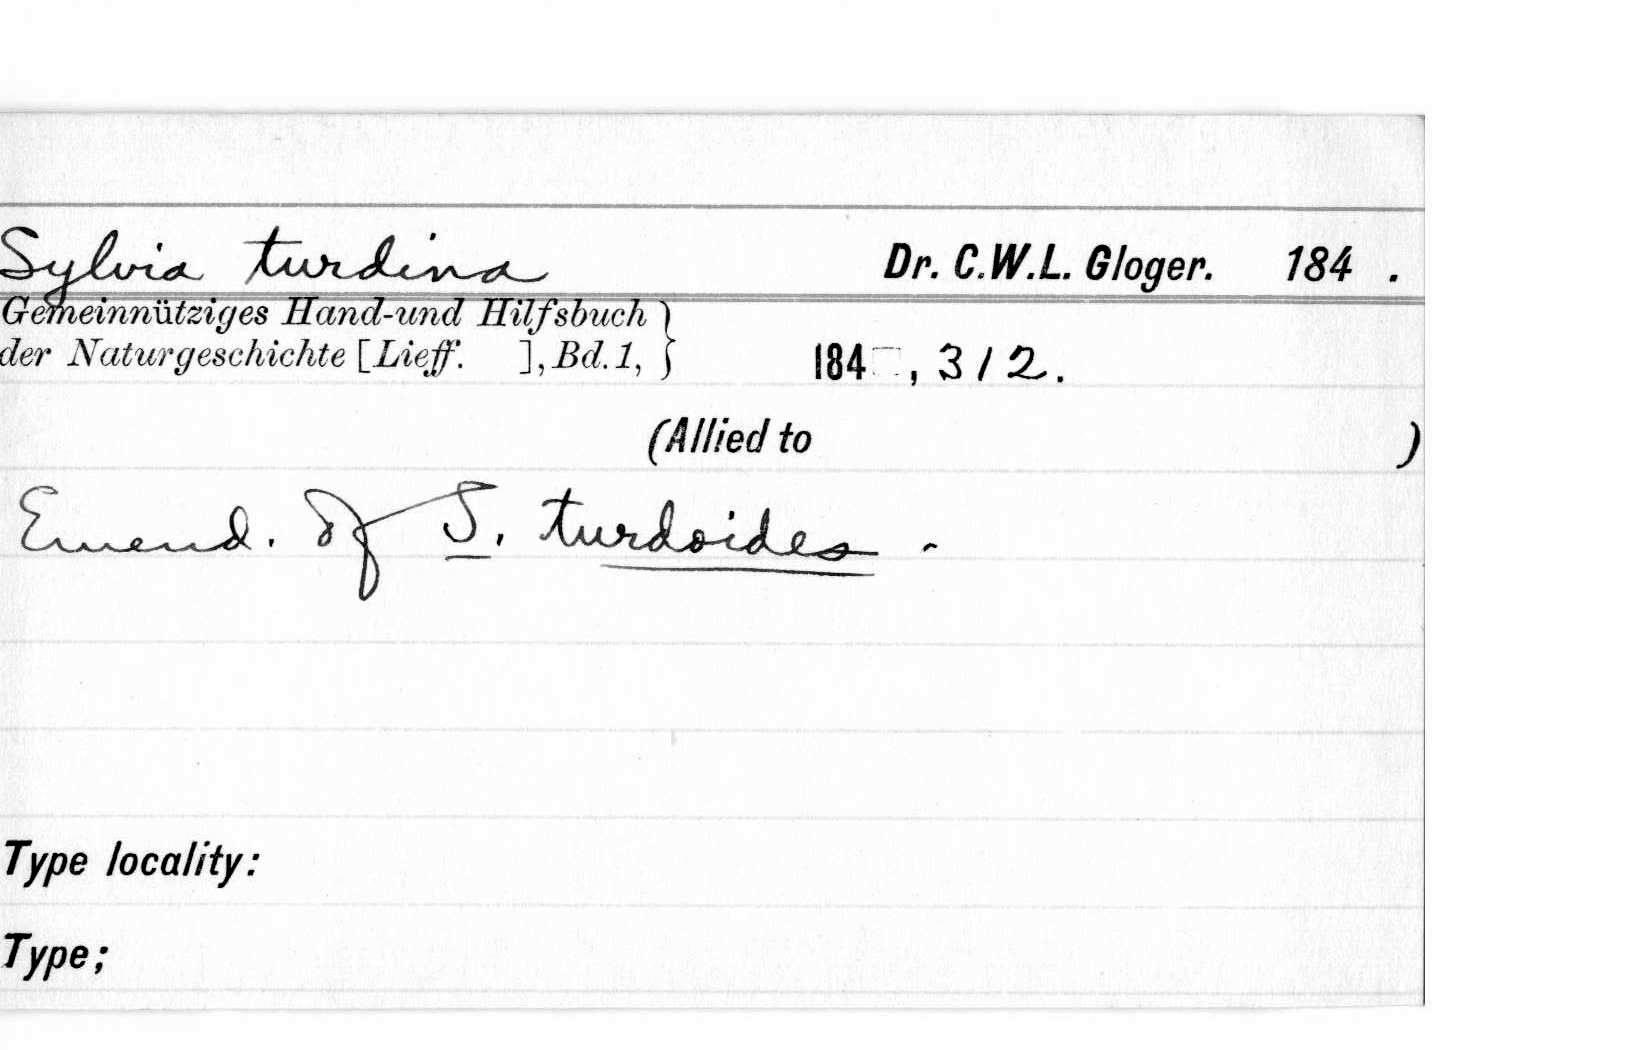 Sylvia turdina Dr. C.W.L. Gloger. 184 .
Gemeinnütziges Hand-und Hilfsbuch }
der Naturgeschichte [Lieff. ], Bd. 1, } 184 , 312.
(Allied to )
Emend. of S. turdoides -
Type locality:
Type;